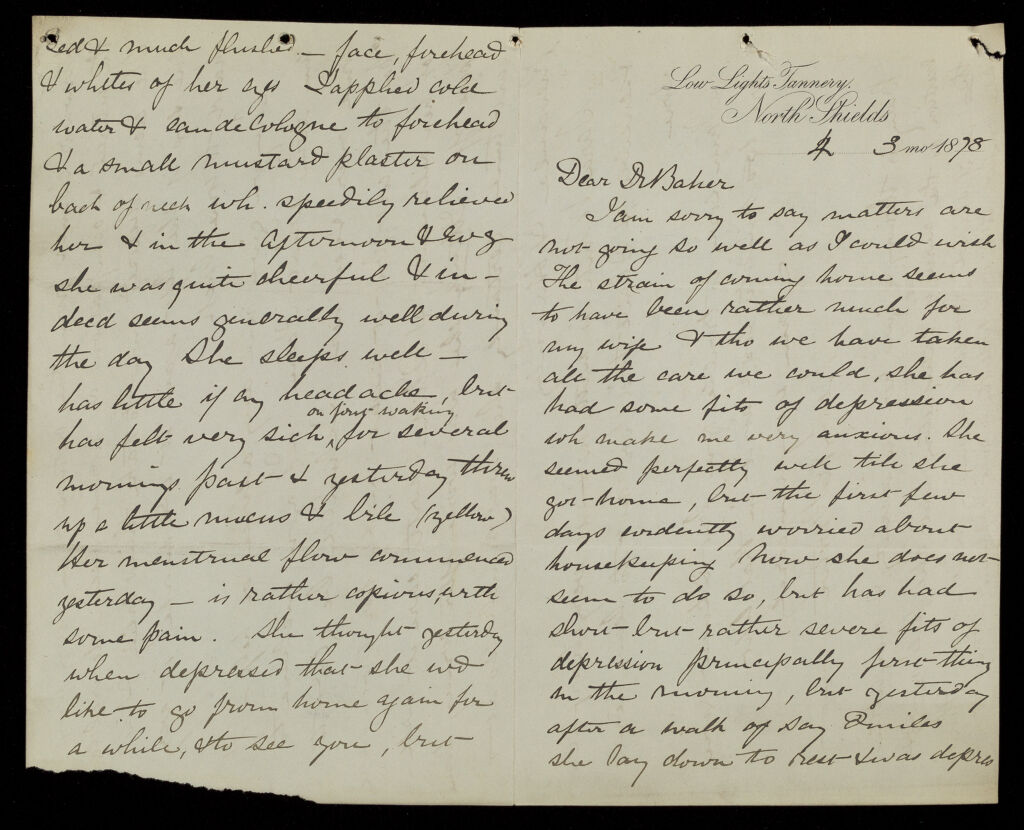 Low Lights Tannery.
North Shields
4 3 mo 1878
Dear Dr Baker
I am sorry to say matters are
not going so well as I could wish
The strain of coming home seems
to have been rather much for
my wife & tho we have taken
all the care we could, she has
had some fits of depression
wh make me very anxious. She
seemed perfectly well till she
got home, but the first few
days evidently worried about
housekeeping Now she does not
seem to do so, but has had
short but rather severe fits of
depression principally first thing
in the morning, but yesterday
after a walk of say 2 miles
she lay down to rest & was depres
sed & much flushed – face, forehead
& whites of her eyes I applied cold
water & eau de Cologne to forehead
& a small mustard plaster on
back of neck wh. speedily relieved
her & in the afternoon & evg
she was quite cheerful & in-
deed seems generally well during
the day She sleeps well –
has little if any headache, but
has felt very sick on first waking for several
mornings past & yesterday threw
up a little mucus & bile (yellow)
Her menstrual flow commenced
yesterday – is rather copious, with
some pain. She thought yesterday
when depressed that she wd
like to go from home again for
a while, & to see you, but